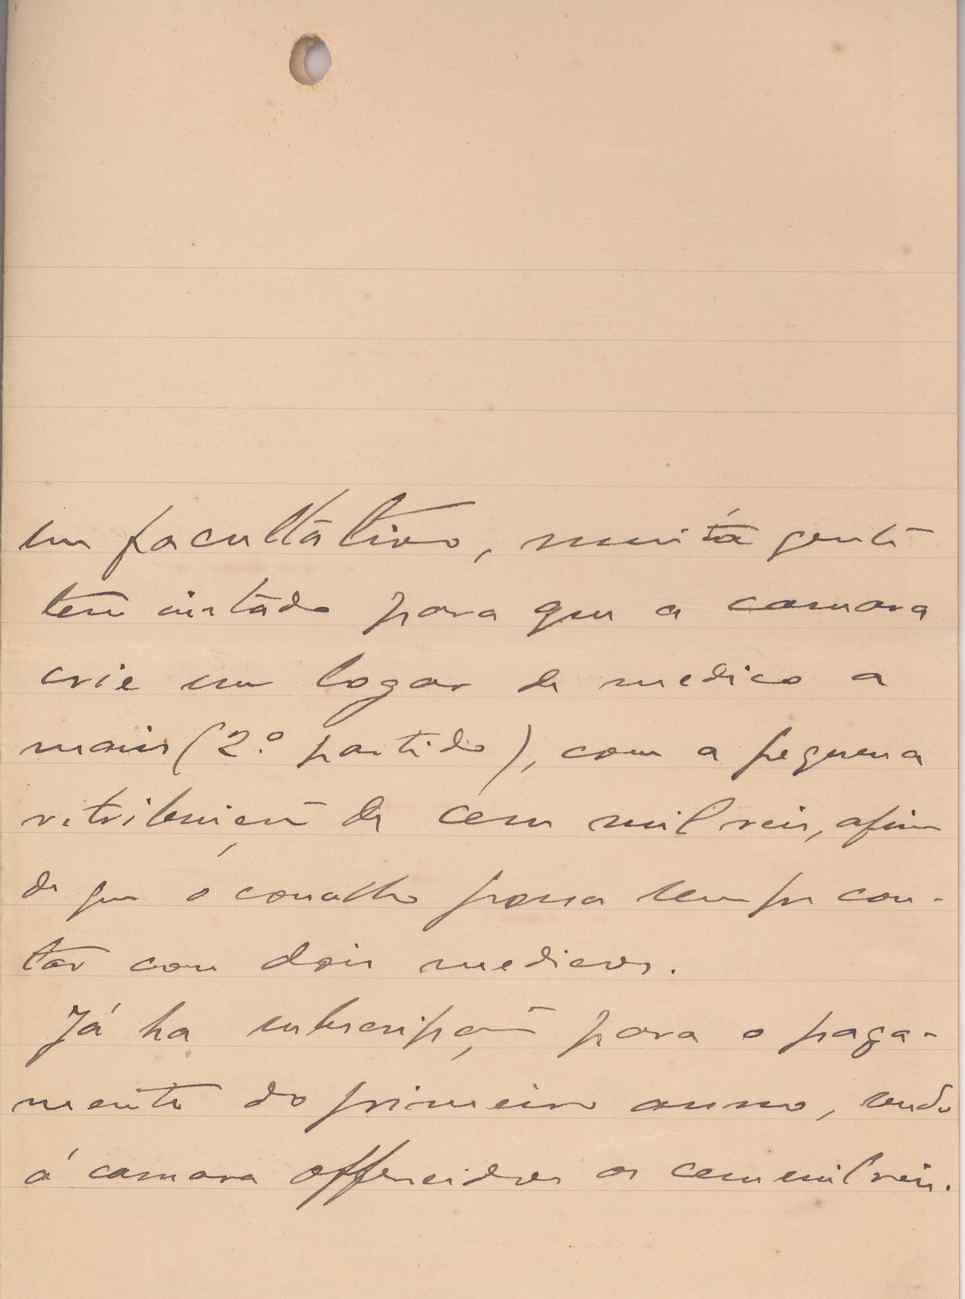 um facultativo, muita gente
tem instado para que a camara
crie um logar de medico a
mais (2.º partido), com a pequena
retribuição de cem mil reis, afim
de que o concelho possa sempre con-
tar com dois medicos.
Já ha subscripção para o paga-
mento do primeiro anno, sendo
á camara offerecidos os cem mil reis.